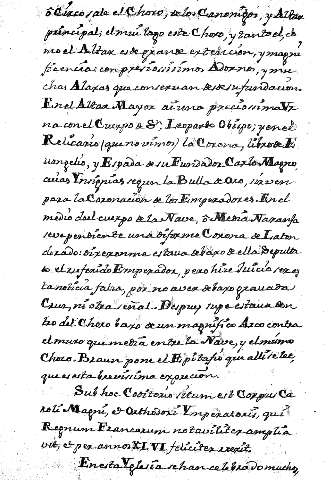 ó Circo sale el Choro, de los Canonigos, y Altar
principal; el mui largo este Choro, y tanto el, co
mo el Altar es de grande extencion, y magni
ficencia con preciosissimos Adorno, y mu
chas Alaxas que conseruan desde su fundacion.
En el Altar Mayor ai una preciosima Vr
na con el Cuerpo de Sn. Leopardo Obispo; y en el
Relicario (que no vimos) la Corona, libro de E
uangelio, y Espada de su Fundador Carlo Magno
cuias Ynsignias segun la Bulla de Oro, siruen
para la Coronacion de los Emperadores. En el
medio del cuerpo de la Naue, ó Media Naranja
se ve pendiente una disforme Corona de Laton
dorado: dixeronme estaua debaxo de ella Sepulta
do el referido Emperador, pero hize Juicio ser es
ta noticia falsa, por no auer debaxo grauada
Cruz, ni otra señal. Despues supe estaua den
tro del Choro baxo de un magnifico Arco contra
el muro que media entre la Naue, y el mismo
Choro. Braun pone el Epitafio que alli se lee,
que es esta breuissima exprecion.
Sub hoc Conditorio situm est Corpus Ca
roli Magni, et Orthodoxi Ymperatoris, qui
Regnum Francorum notauiliter amplia
vit, et per annos XLVI feliciter rexit.
En esta Yglesia se han celebrado mucho,